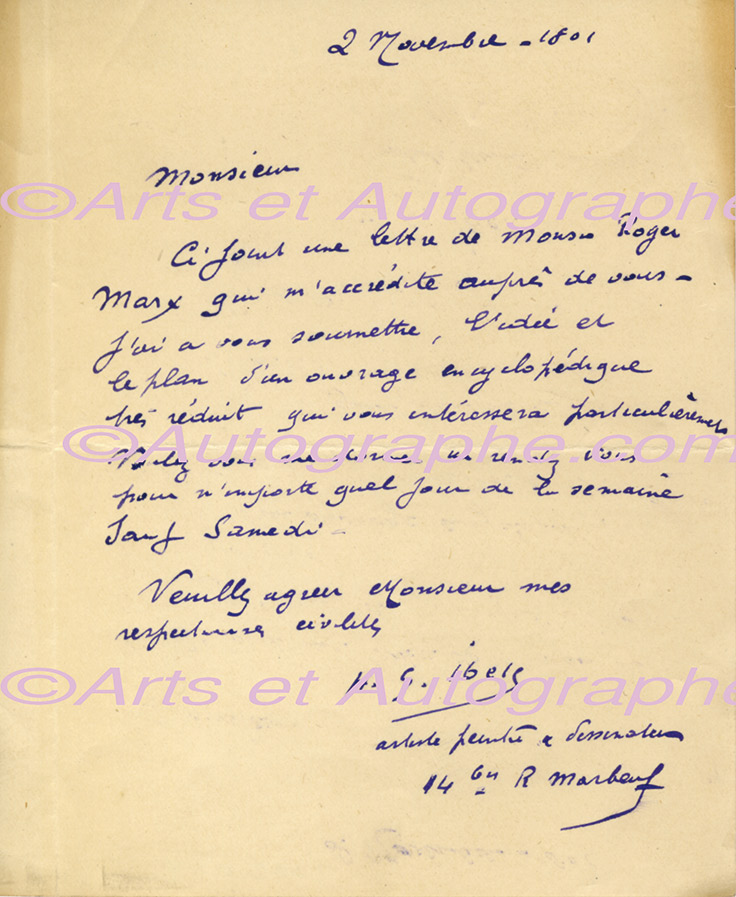 2 Novembre - 1801
Monsieur
©Arts et Autographe
Ci joint une lettre de Monsr Roger
Marx qui m'accrédite auprès de vous -
J'ai a vous soumettre, l'idée et
le plan d'un ouvrage encyclopédique
très réduit qui vous intéressera particulièrement
©Autographe.com
Voulez vous me donner un rendez vous
pour n'importe quel jour de la semaine
Sauf Samedi -
Veuillez agreer Monsieur mes
respectueuses civilités
©Arts et Autographe
H. G. Ibels
artiste peintre & dessinateur
14 bis R Marbeuf